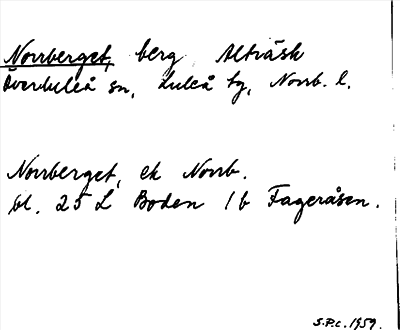 Norrberget, berg Alträsk
Överluleå sn, Luleå tg, Norrb. l.
Norrberget, ek Norrb.
bl. 25 L Boden 1 b Fageråsen.
S.P.C. 1959.